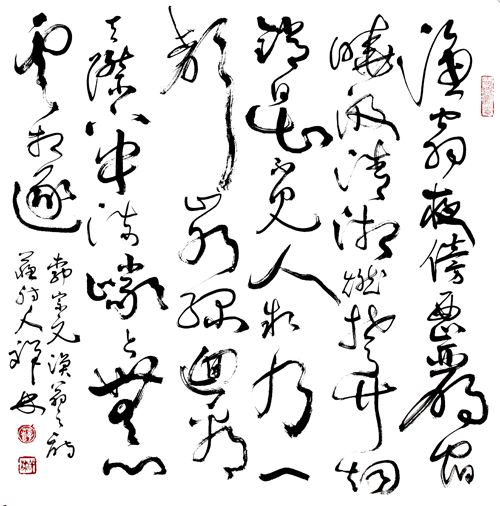 漁翁夜傍西巖宿
曉汲清湘燃楚竹烟
銷日出不見人欸乃一
聲山水綠迴看
天際下中流巖上無心
雲相逐
柳宗元漁翁之詩